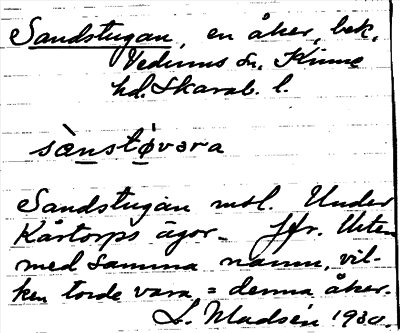 Sandstugan, en åker, bek.
Vedums sn. Kinne
hd. Skarab. l.
sànstø̀vara
Sandstugan msl. Under
Kårtorps ägor. Jfr.
med samma namn, vil-
ken torde vara = denna åker.
L. Madsén 1930.